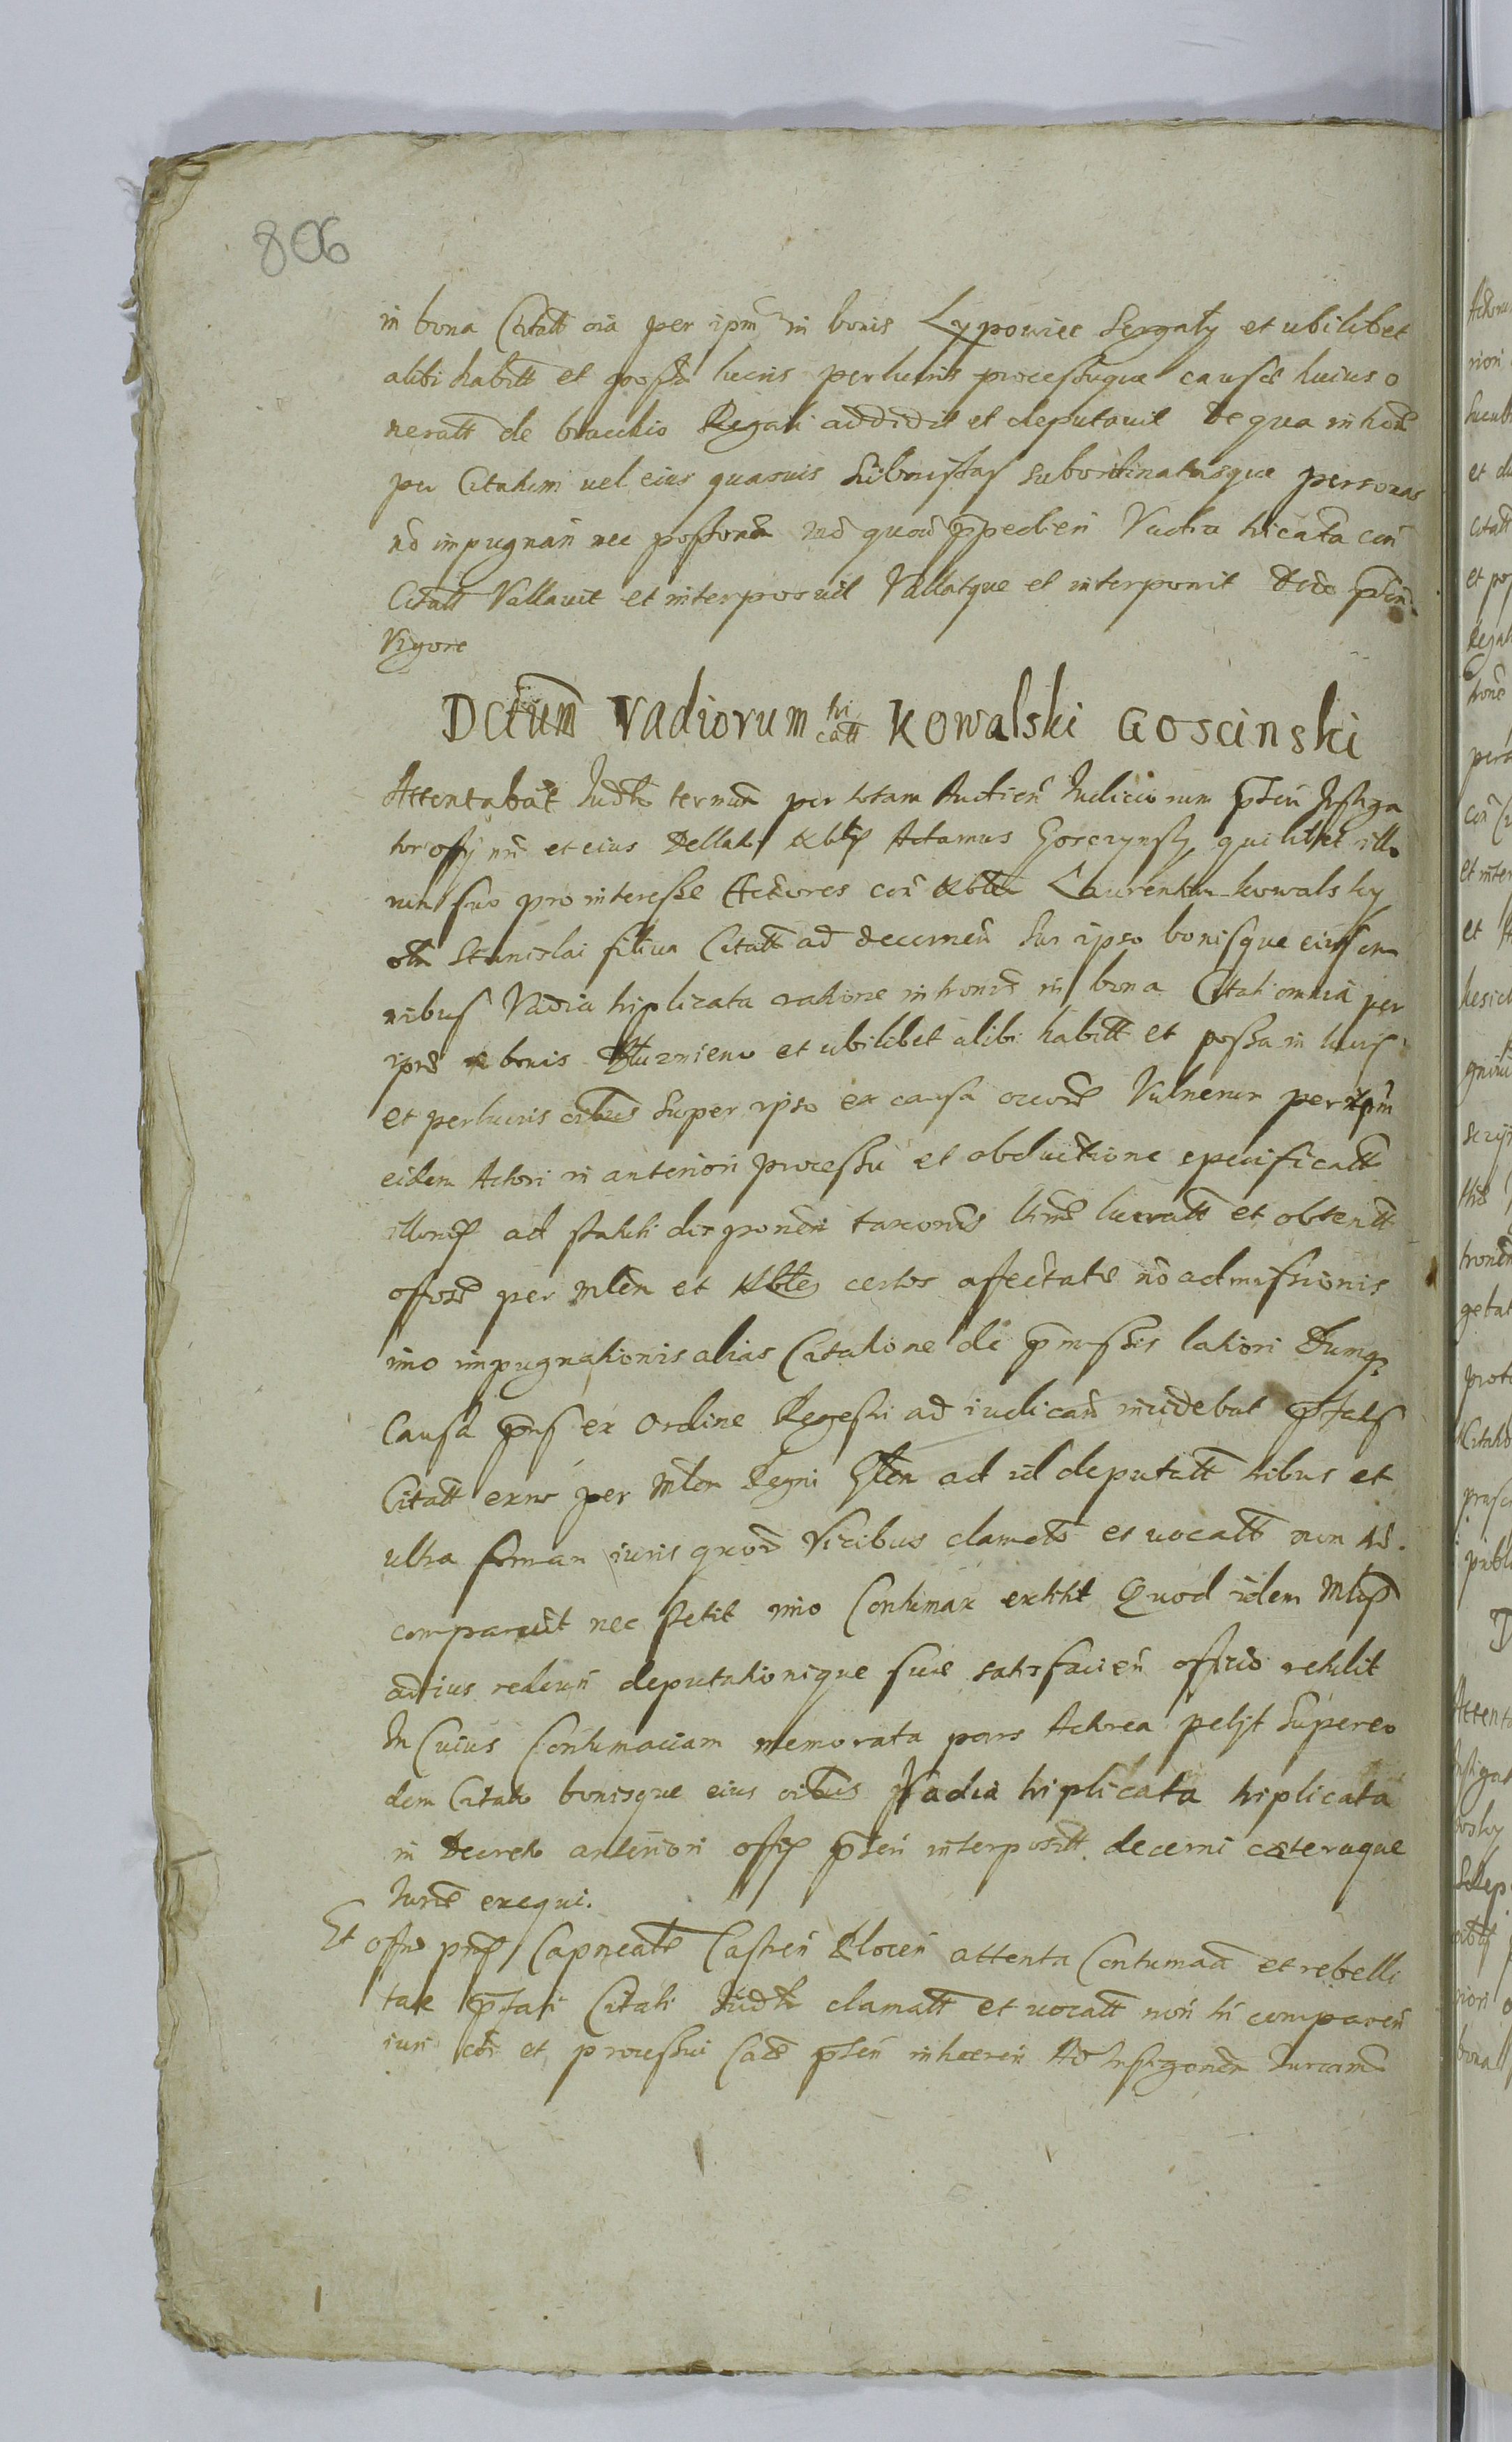 806
in bona Citatt oia per ipm in bonis Lypowiec Sergaly et ubilibet
alibi habitt et possa lucris perlucris processuque causæ huius o
neratt de bracchio Regali addidit et deputavit De qua in
per Citatum vel eius quasvis submissas subordinatasque personas
nō impugnañ nec Vadia tricata coñ
Citatt Vallavit et interposuit Vallatque et interponit Dcto p̄ñ
Vigore
Dctum Vadiorum tri catt Kowalski Goscinski
Attentabat Judtr termin per totam Audien Iudiciorum p̄ten Instiga
tor offij nri et eius Dellator Nblis Adamus Gosczynsky quilibet illo
rum suo pro interesse Actores coñ Nblem Laurentium Kowalsky
olim Stanislai filium Citatt ad decernen Sur ipso bonisque eius om
nibus Vadia triplicata ratione intromis in bona Citati omnia per
ipm bonis et ubilibet alibi habitt et possa in lucris
et perlucris oibus Super ipso ex causa Vulnerum per ipm
eidem Actori in anteriori processu et obductione specificatt
illorumque ad statuti disponen taxonis lucratt et obtentt
offose per Mlem et Nbles certos affectate nō admissionis
imo impugnationis alias Citatione de p̄missis latiori Dumq
Causa p̄ns ex Ordine Regestri ad iudicand incidebat p̄fatus
Citatt exnc per Mlem Regni Glem ad id deputatt tribus et
ultra forman iuris quod Vicibus clamatt et vocatt non
comparuit nec stetit imo Contumax extitit Quod idem Mlis
ad ius redeun deputationique suæ satisfacien officio retulit
In Cuius Contumaciam memorata pars Actorea petijt Super eo
dem Citato bonisque eius oibus Vadia triplicata triplicata
in Decreto anteriori offij p̄ten interpositt decerni cæteraque
Iuris exequi.
Et offm p̄ns Capneale Castren attenta Contumacia et rebelli
tate p̄fati Citati Iudtr clamatt et vocatt non tn comparen
iuri coi et processui Cae p̄ten inhæren Ad Instigonem Iuream